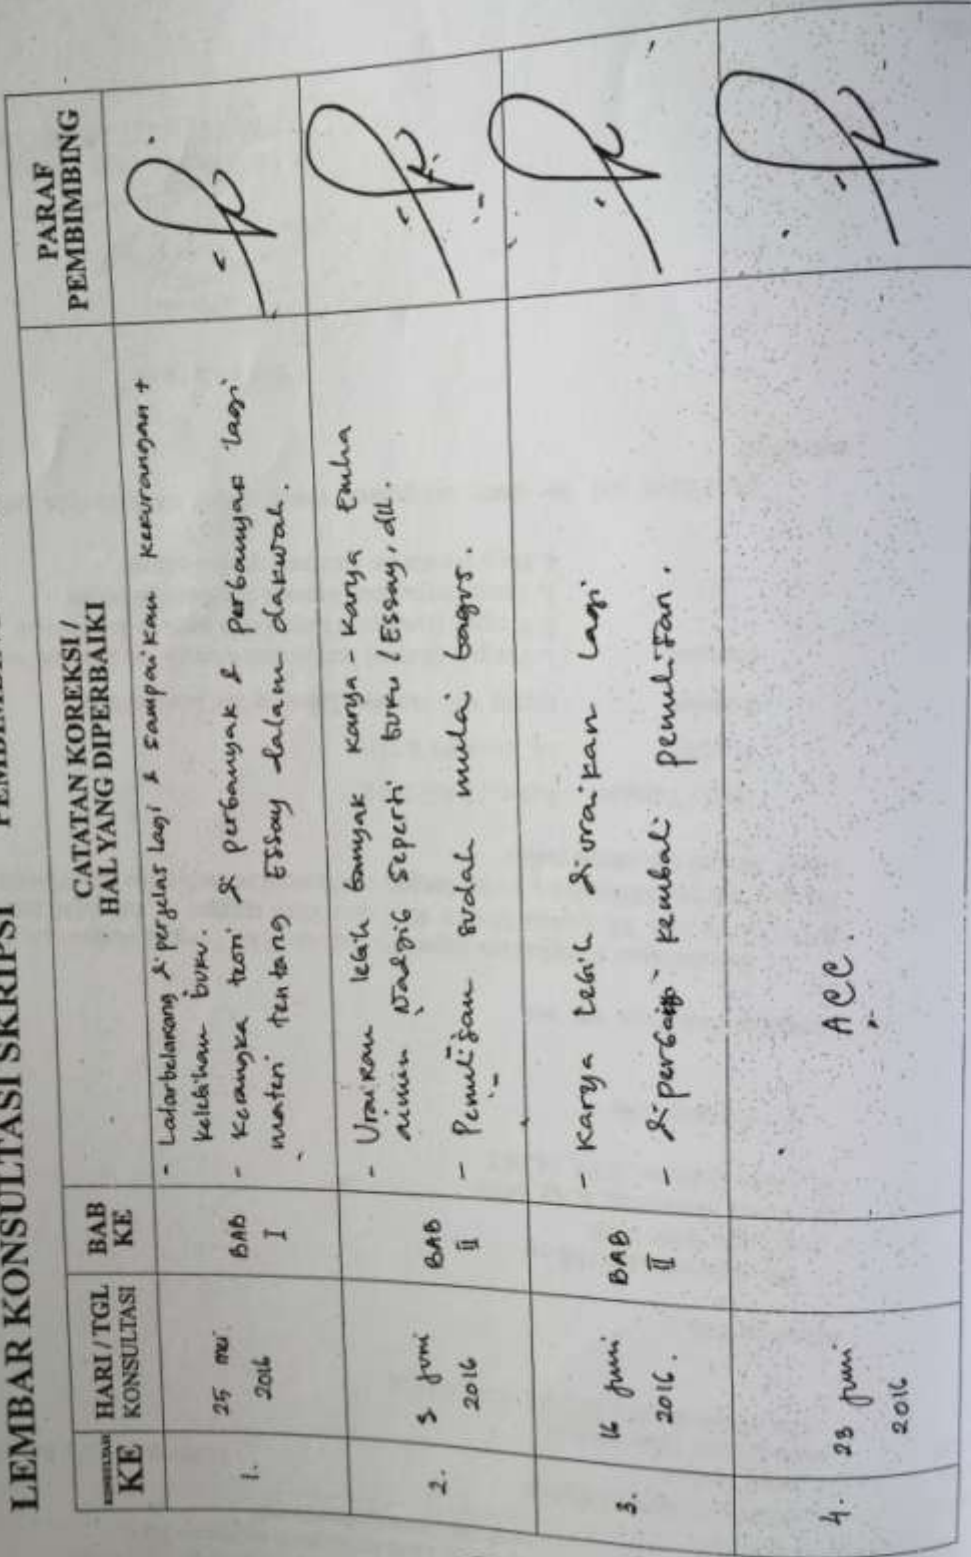 LEMBAR KONSULTASI SKRIPSI
KE
HARI / TGL
KONSULTASI
BAB
KE
CATATAN KOREKSI /
HAL YANG DIPERBAIKI
PARAF
PEMBIMBING
1.
25 mei
2016
BAB
I
- Latarbelakang diperjelas lagi & sampaikan kekurangan +
kelebihan buku.
- Kerangka teori diperbanyak & perbanyak lagi
materi tentang Essay dalam dakwah.
2.
Juni
2016
BAB
II
- Uraikan lebih banyak karya-karya Emha
ainun Nadjib seperti buku / Essay, dll.
- Penulisan sudah mulai bagus.
3.
16 Juni
2016.
BAB
II
- Karya lebih diuraikan lagi
- diperbaiki kembali penulisan.
4.
23 Juni
2016
ACC.